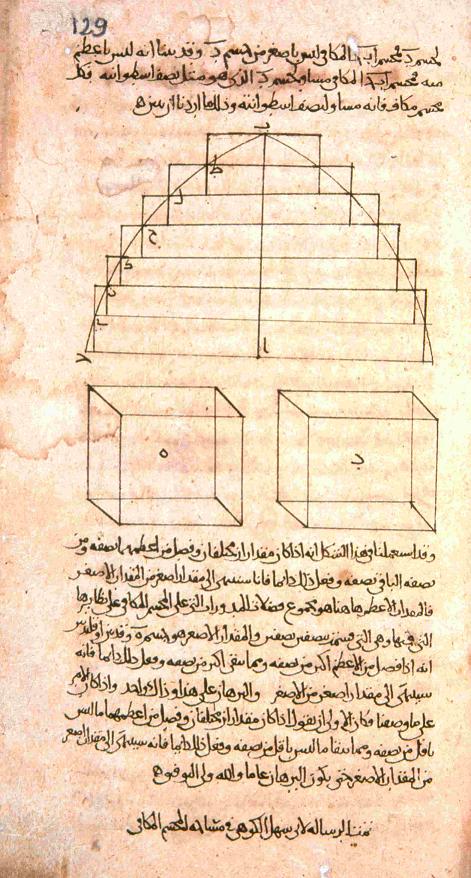 129
لمجسم د فمجسم اب ج المكافى ليس باصغر من جسم د وقد بينا انه ليس باعظم
منه فمجسم اب ج المكافى مساو لمجسم د الذى هو مثل نصف اسطوانته فكل
مجسم مكاف فانه مساو لنصف اسطوانته وذلك ما اردنا ان نبين ه
ب
ط
ح
ا
د
ه
وقد استعملنا فى هذا الشكل انه اذا كان مقداران مختلفان وفصل من اعظمهما نصفه ومن
نصفه الباقى نصفه وفعل ذلك دائما فانا سننتهى الى مقدار اصغر من المقدار الاصغر
فالمقدار الاعظم ها هنا هو مجموع فضلات المدورات التى على المجسم المكافى على نظايرها
التى فيها وهى التى قسمت بنصفين نصفين والمقدار الاصغر هو جسم ه وقد بين اوقليدس
انه اذا فصل من الاعظم اكبر من نصفه ومما بقى اكبر من نصفه وفعل ذلك دائما فانه
سينتهى الى مقدار اصغر من الاصغر والبرهان على هذا وذاك واحد واذا كان الامر
على ما وصفنا فكان الاولى ان نقول اذا كان مقداران مختلفان وفصل من اعظمهما ما ليس
باقل من نصفه ومما بقى ما ليس باقل من نصفه وفعل ذلك دائما فانه سينتهى الى مقدار اصغر
من المقدار الاصغر حتى يكون البرهان عاما والله ولى التوفيق ه
تمت الرسالة لابى سهل الكوهى فى مساحة المجسم المكافى